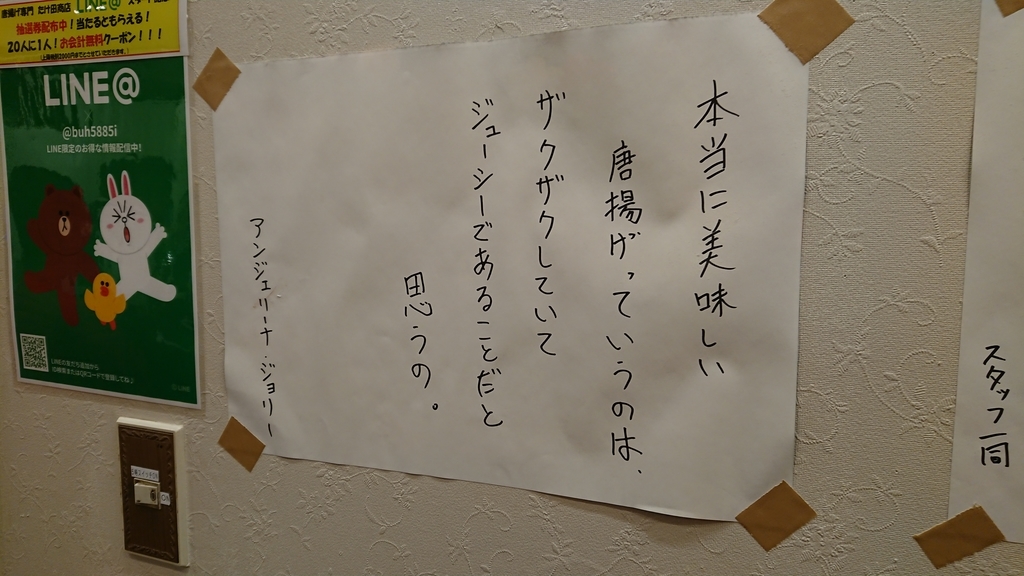 本当に美味しい
唐揚げっていうのは、
ザクザクしていて
ジューシーであることだと
思うの。
アンジェリーナ・ジョリー
スタッフ一同
唐揚げ専門 たけ田商店 LINE@
抽選券配布中!当たるともらえる!
20人に1人!お会計無料クーポン!!!
LINE@
@buh5885i
LINE限定のお得な情報配信中!
LINEの友だち追加から
ID検索またはQRコードで登録してね♪